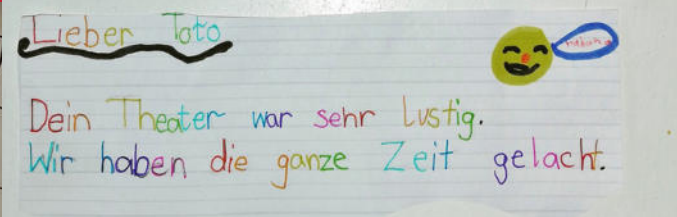 Lieber Toto
Dein Theater war sehr lustig.
Wir haben die ganze Zeit gelacht.